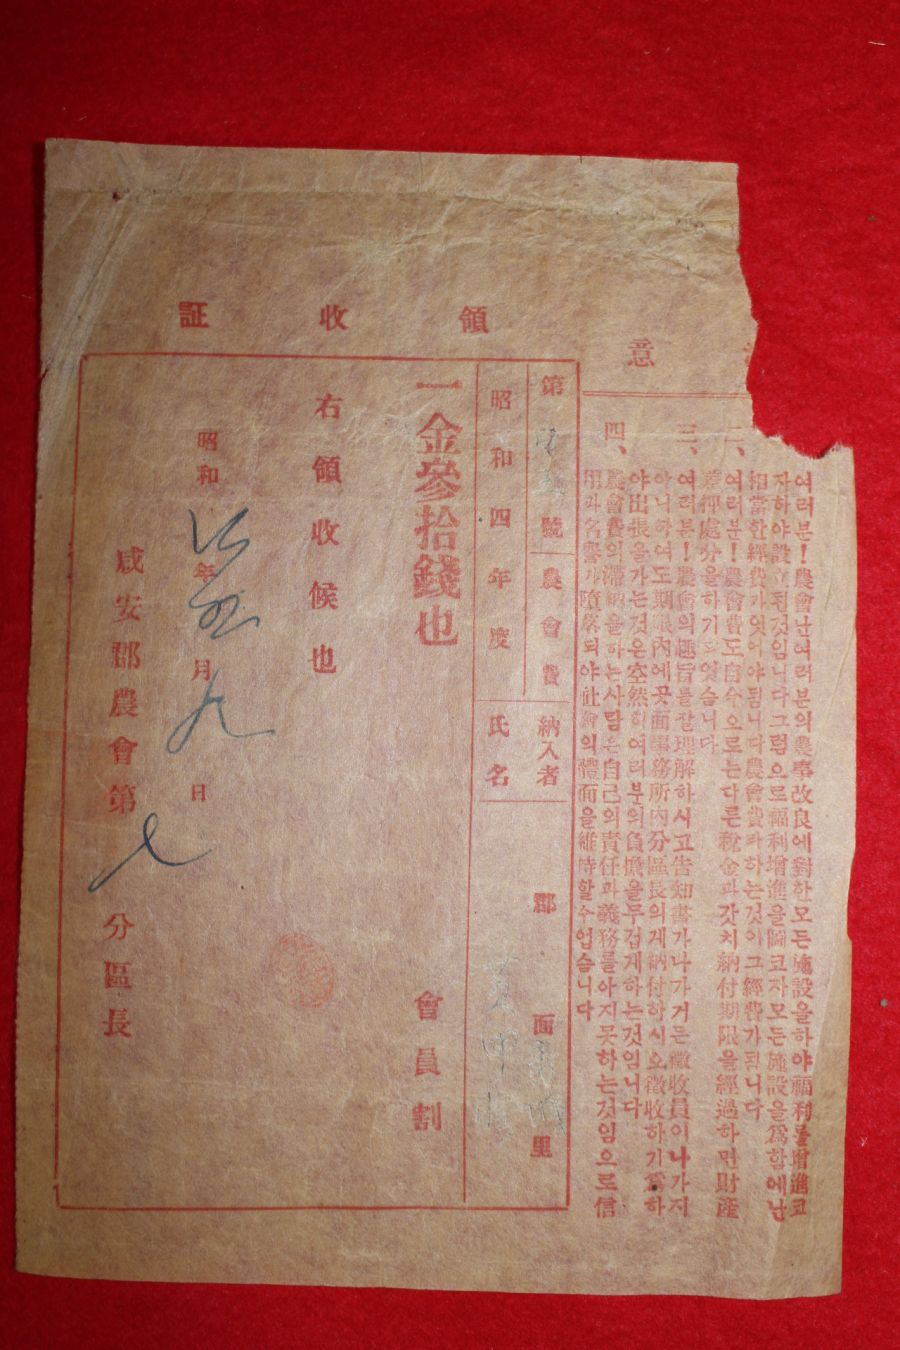 意
여러분!農會난여러분의農事改良에對한모든施設을하야福利를增進코
자하야設立된것임니다그럼으로福利增進을圖코자모든施設을爲함에난
相當한經費가잇어야됨니다農會費라하는것이그經費가됨니다
二、여러분!農會費도自今으로는다른稅金과갓치納付期限을經過하면財産
差押處分을하기되엿슴니다
三、여러분!農會의趣旨를잘理解하시고告知書가나가거든徵收員이나가지
아니하여도期限內에곳面事務所內分區長의게納付합시오徵收하기爲하
야出張을가는것은空然히여러분의負擔을무겁게하는것임니다
四、農會費의滯納을하는사람은自己의責任과義務를아지못하는것임으로信
用과名譽가墮落되야社會의體面을維時할수업슴니다
領收証
第 號 農會費 納入者 郡 面 里
昭和四年度 氏名
一金參拾錢也 會員割
右領收候也
昭和 年 月 九日
咸安郡農會第七分區長